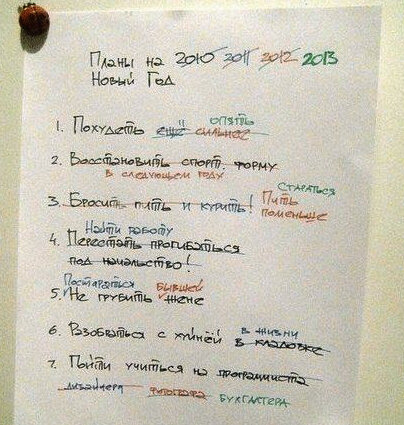 Планы на 2010 2011 2012 2013
Новый Год
опять
1. Похудеть ещё сильнее
2. Восстановить спорт. форму
в следующем году
стараться
3. Бросить пить и курить! Пить
поменьше
Найти работу
4. Перестать прогибаться
под начальство!
Постараться бывшей
5. Не грубить жене
6. Разобраться с хуйнёй в жизни
в кладовке
7. Пойти учиться на программиста
дизайнера фотографа бухгалтера